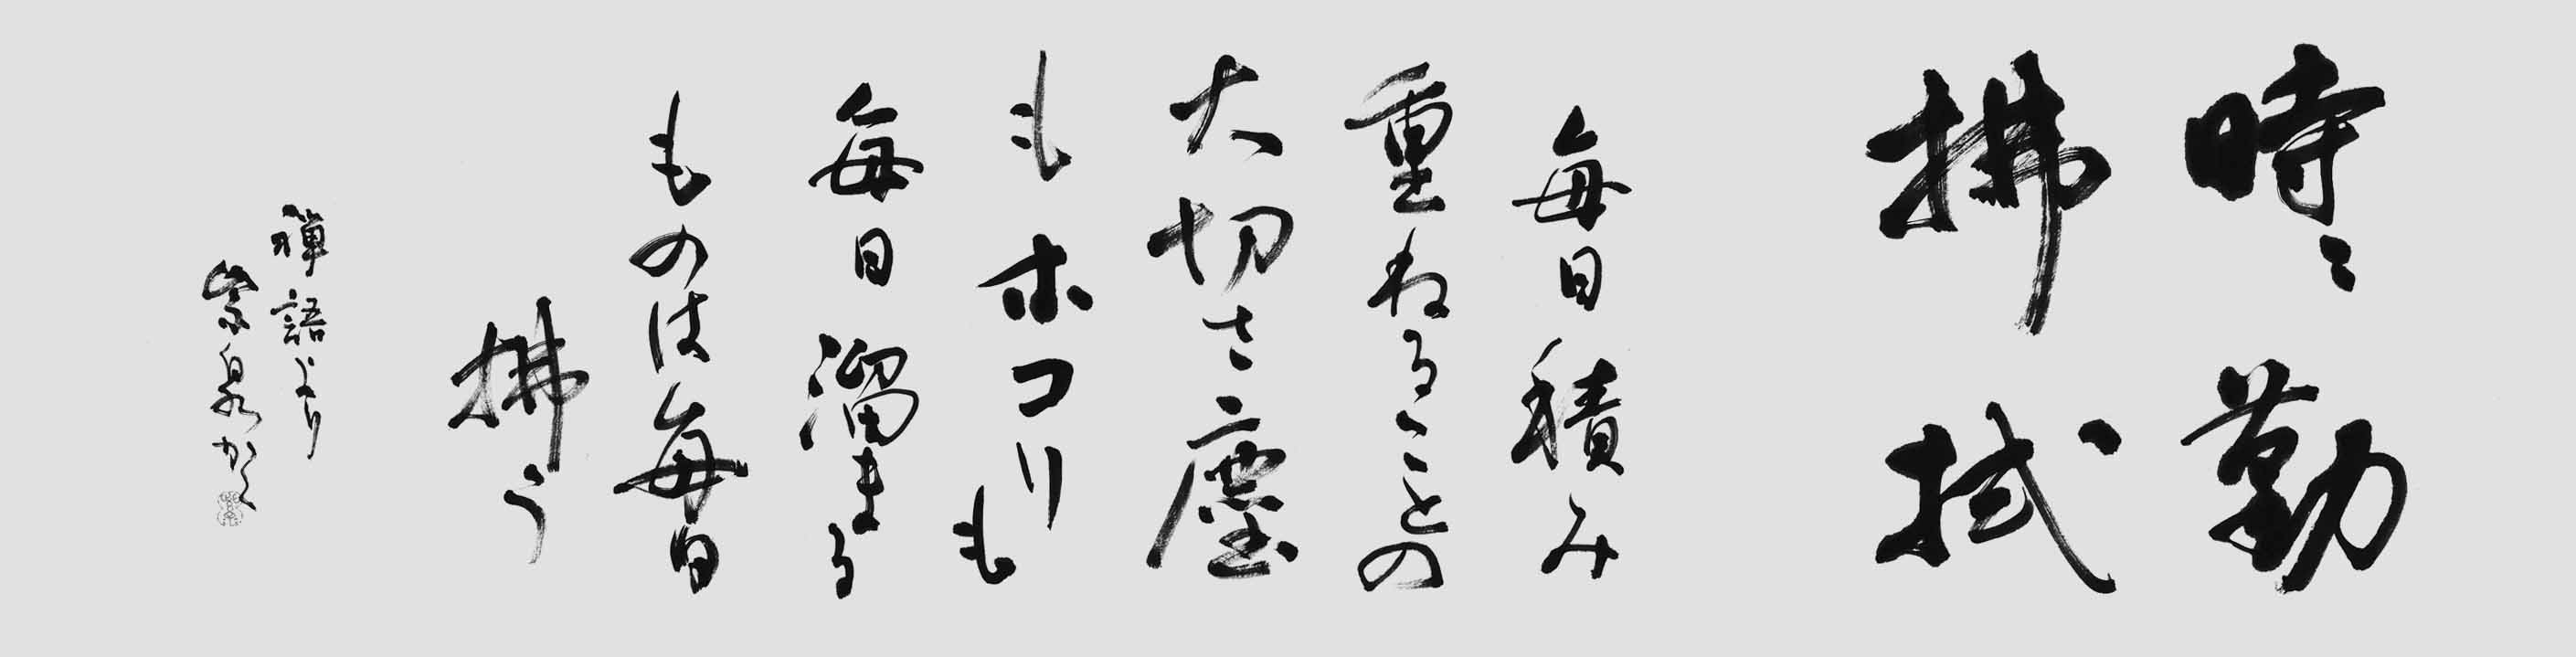 時々勤
拂拭
毎日積み
重ねることの
大切さ塵
もホコリも
毎日溜まる
ものは毎日
拂う
禅語より
紫泉かく